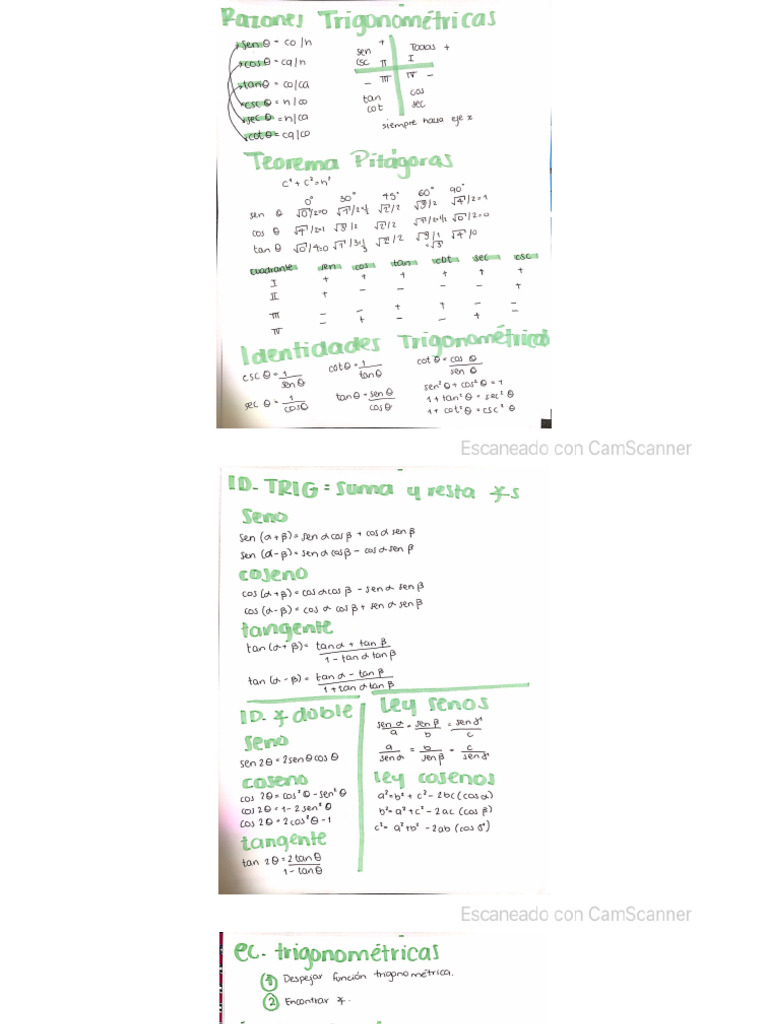 Razones Trigonométricas
sen θ = co/h
cosθ = ca/h
tanθ = co/ca
csc θ = h/co
sec θ = h/ca
cotθ = ca/co
sen + Todas +
csc II I
- III IV -
tan cos
cot sec
siempre hacia eje x
Teorema Pitágoras
c² + c² = h²
0° 30° 45° 60° 90°
sen θ √0/2=0 √1/2=½ √2/2 √3/2 √4/2=1
cos θ √4/2=1 √3/2 √2/2 √1/2=½ √0/2=0
tan θ √0/4=0 √1/3=⅓ √2/2 √3/1 =√3 √4/0
cuadrante sen cos tan cot sec csc
I + + + + + +
II + - - - - +
III - - + + - -
IV - + - - + -
Identidades Trigonométricas
csc θ = 1/sen θ
cot θ = 1/tan θ
cot θ = cos θ/sen θ
sec θ = 1/cosθ
tanθ = senθ/cosθ
sen²θ + cos²θ = 1
1 + tan²θ = sec²θ
1 + cot²θ = csc²θ
Escaneado con CamScanner
ID. TRIG = suma y resta ∡s
Seno
sen (α+β) = sen α cos β + cos α sen β
sen (α-β) = sen α cosβ - cos α sen β
coseno
cos (α+β) = cos α cos β - sen α sen β
cos (α-β) = cos α cos β + sen α sen β
tangente
tan (α+β) = tanα + tan β / 1 - tan α tan β
tan (α-β) = tan α - tan β / 1 + tan α tan β
ID. ∡ doble
seno
sen 2θ = 2senθcosθ
coseno
cos 2θ = cos²θ - sen²θ
cos 2θ = 1 - 2 sen²θ
cos 2θ = 2cos²θ - 1
tangente
tan 2θ = 2tanθ / 1 - tanθ
Ley senos
sen α/a = sen β/b = sen γ/c
a/sen α = b/sen β = c/sen γ
Ley cosenos
a² = b² + c² - 2bc (cos α)
b² = a² + c² - 2ac (cos β)
c² = a² + b² - 2ab (cos γ)
Escaneado con CamScanner
ec. trigonométricas
1 Despejar función trigonométrica.
2 Encontrar ∡.